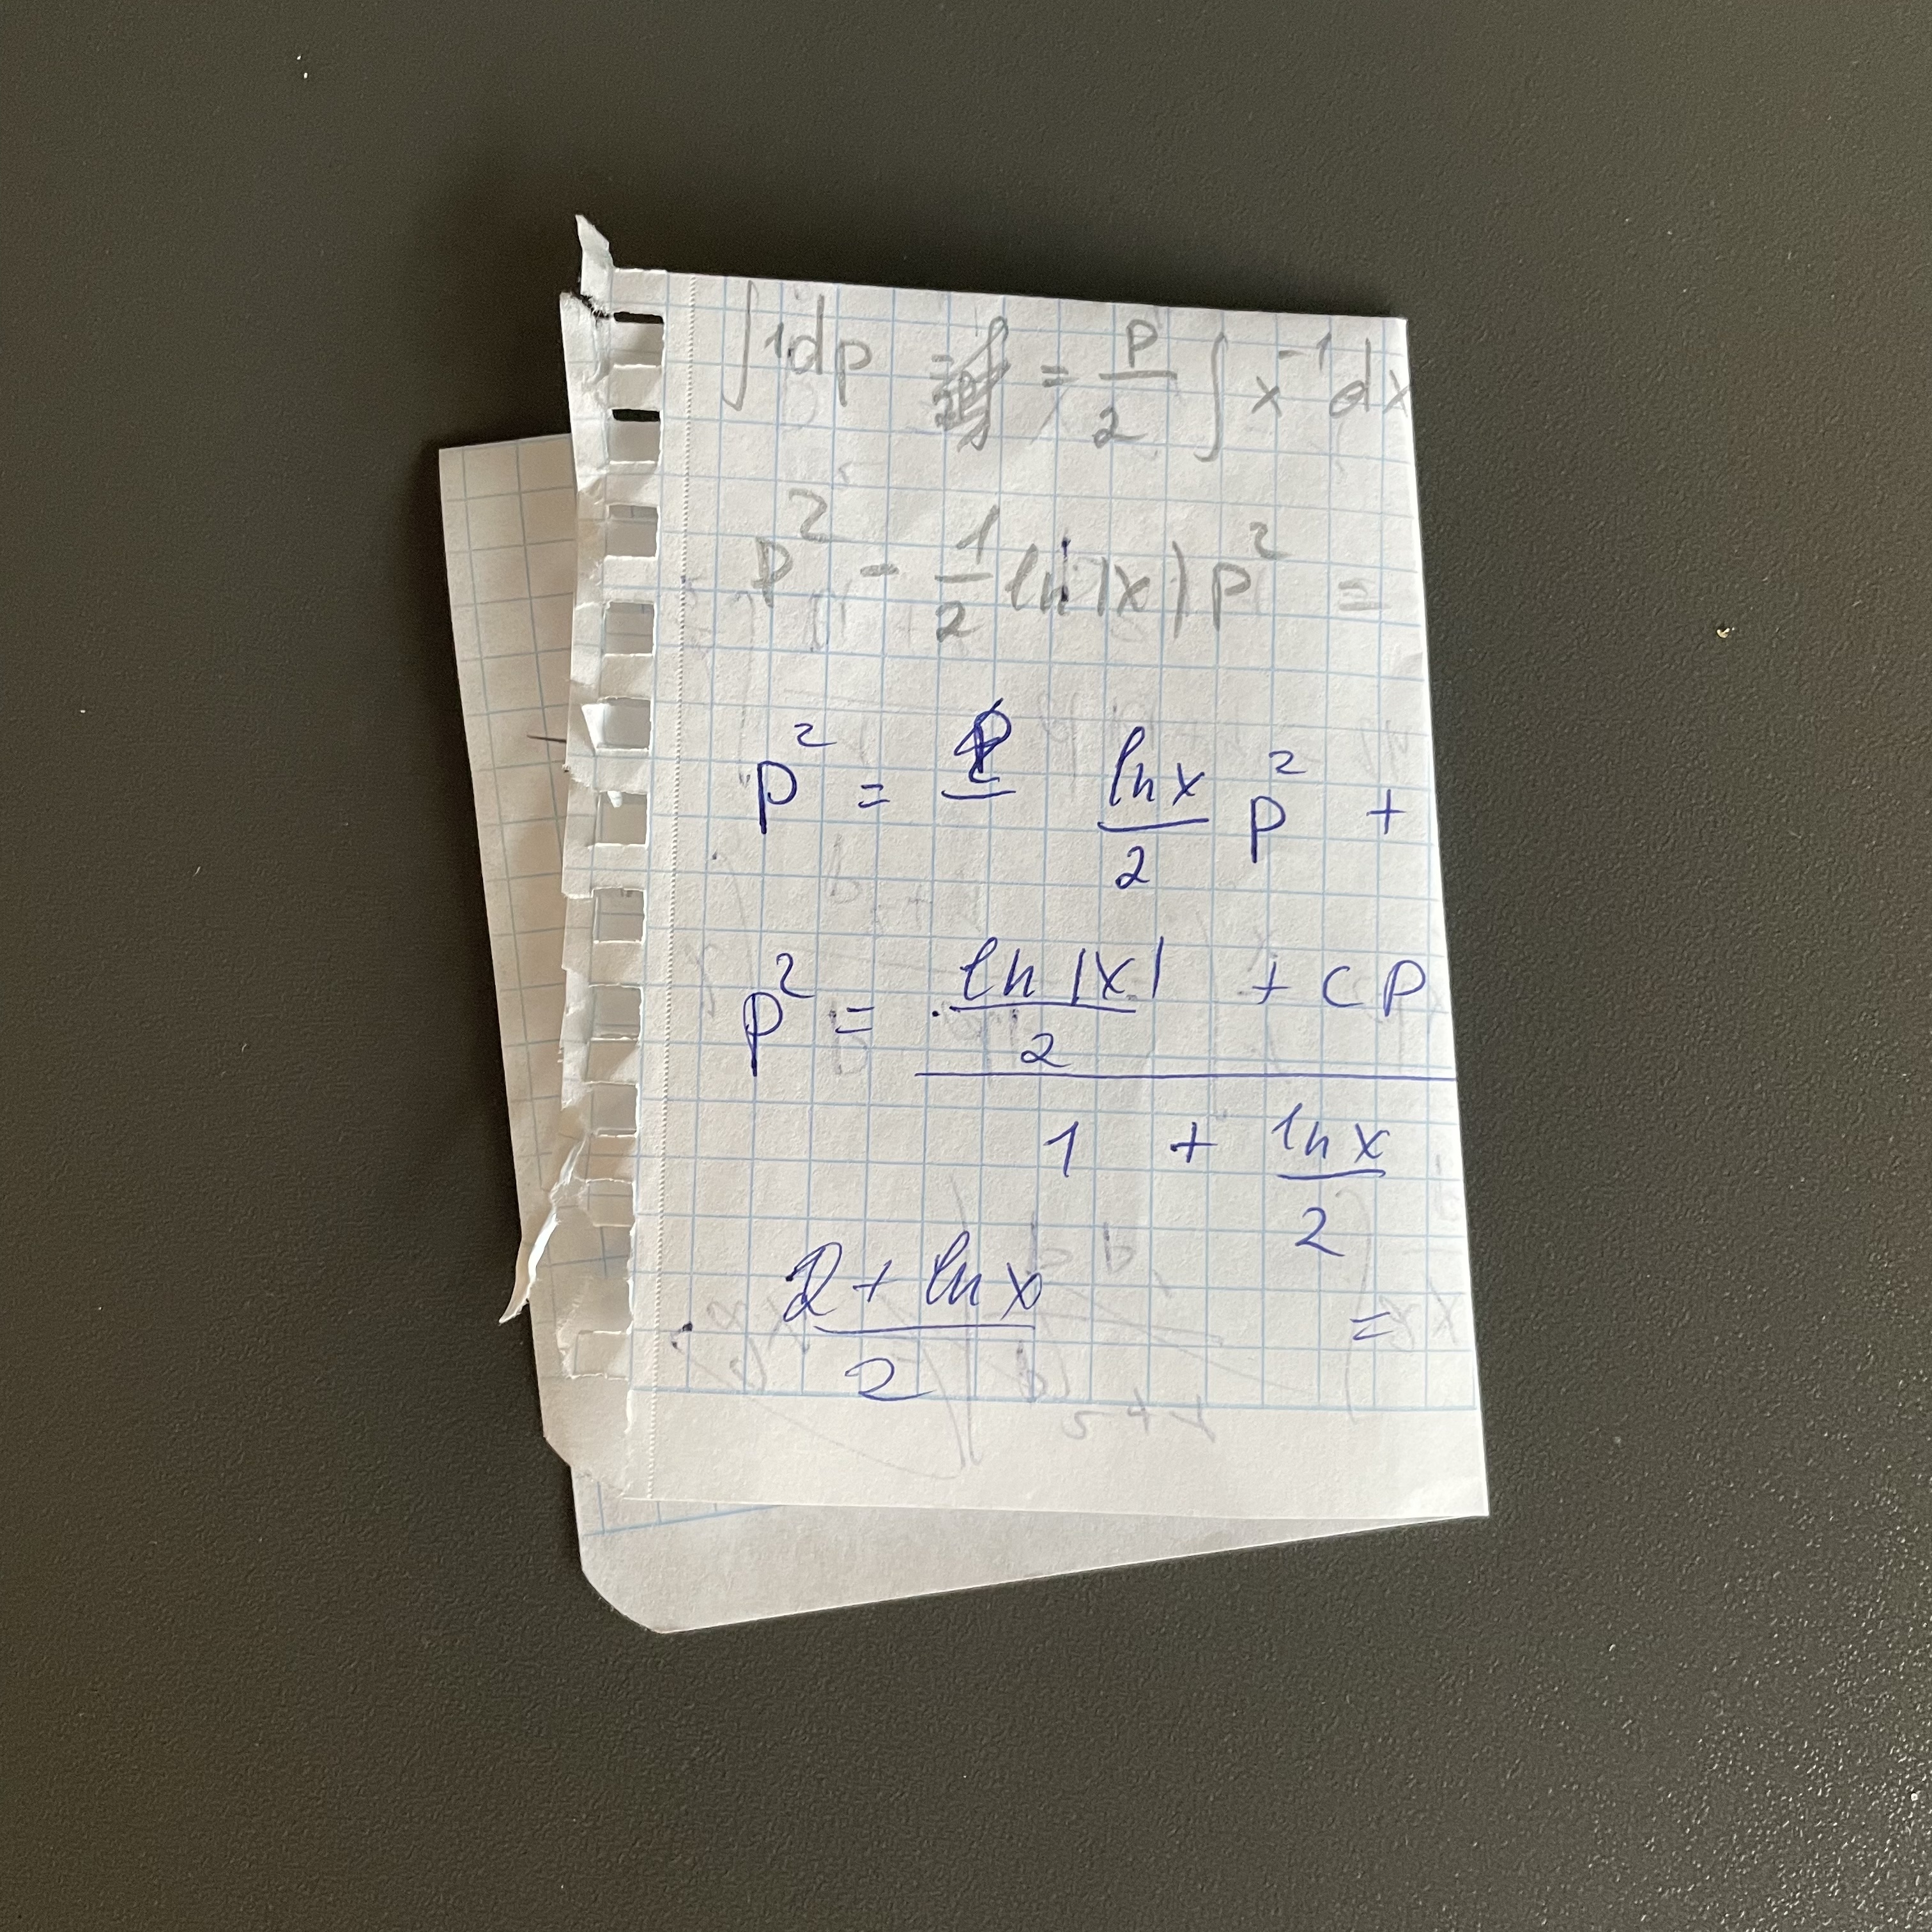 ∫1dp = = p/2 ∫ x^-1 dx
p^2 - 1/2 ln|x| p^2 =
p^2 = ln x/2 p^2 +
p^2 = (ln|x|/2 + cp)/(1 + ln x/2)
(2 + ln x)/2 =